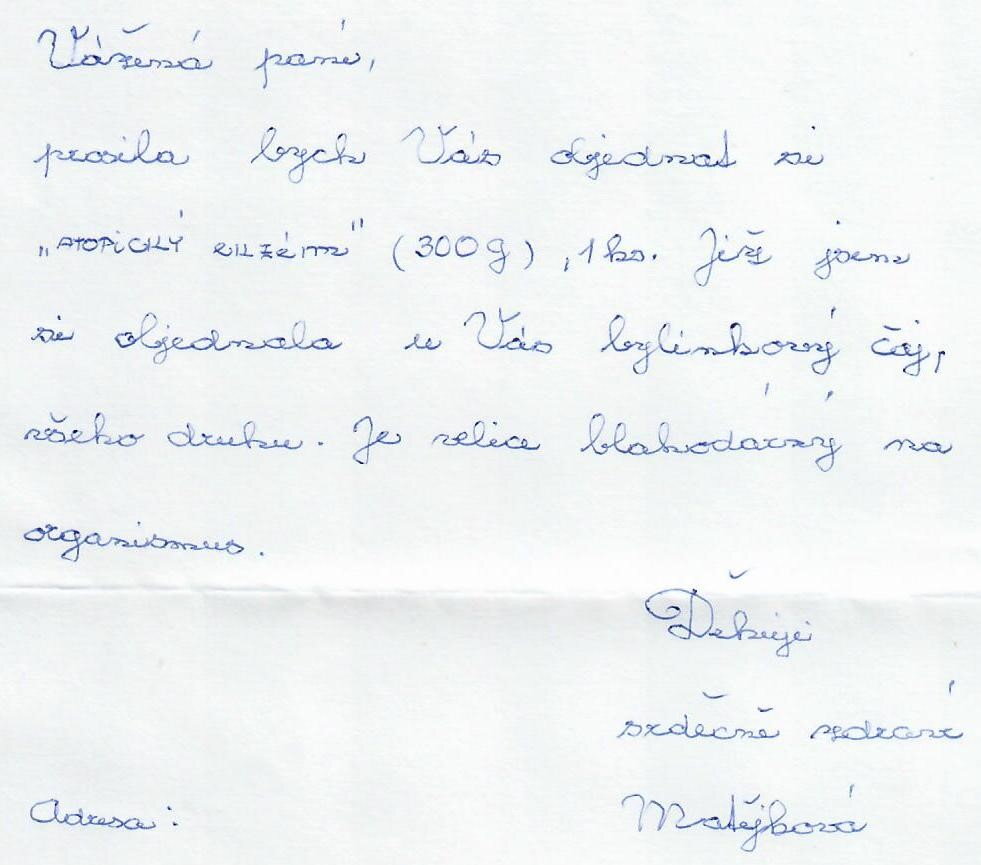 Vážená paní,
prosila bych Vás objednat si
„ATOPICKÝ EKZÉM" (300g), 1 ks. Již jsem
si objednala u Vás bylinkový čaj,
všeho druhu. Je velice blahodárný na
organismus.
Děkuji
srdečně zdraví
Matějková
Adresa: